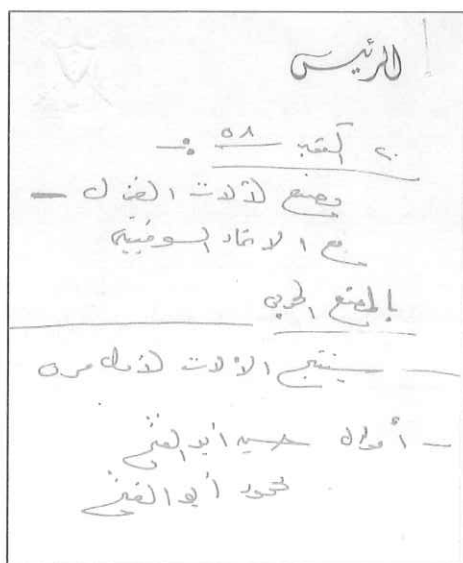 الرئيس
٢٠ أكتوبر ٥٨ :-
مصنع لآلات الغزل —
مع الاتحاد السوفييتى
بالمصنع الحربى
— سينتج الآلات لأول مرة
— أموال حسين أبو الفتح
محمود أبو الفتح